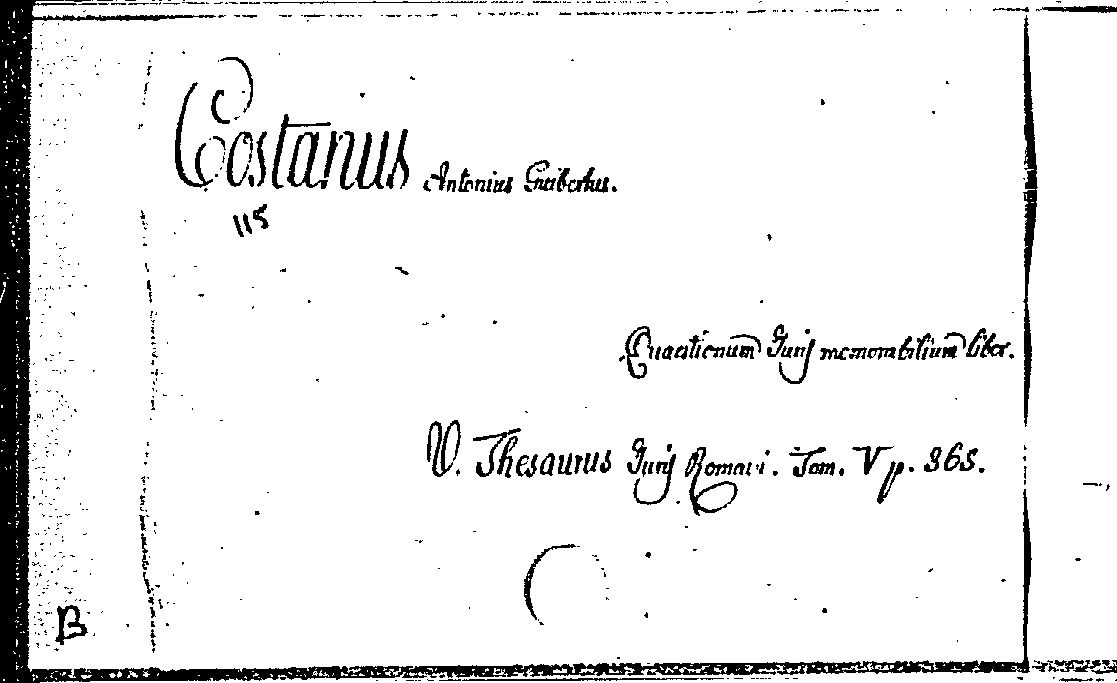 Costanus Antonius Guibertus.
115
Quaestionum Juris memorabilium liber.
V. Thesaurus Juris Romani. Tom. V p. 365.
B